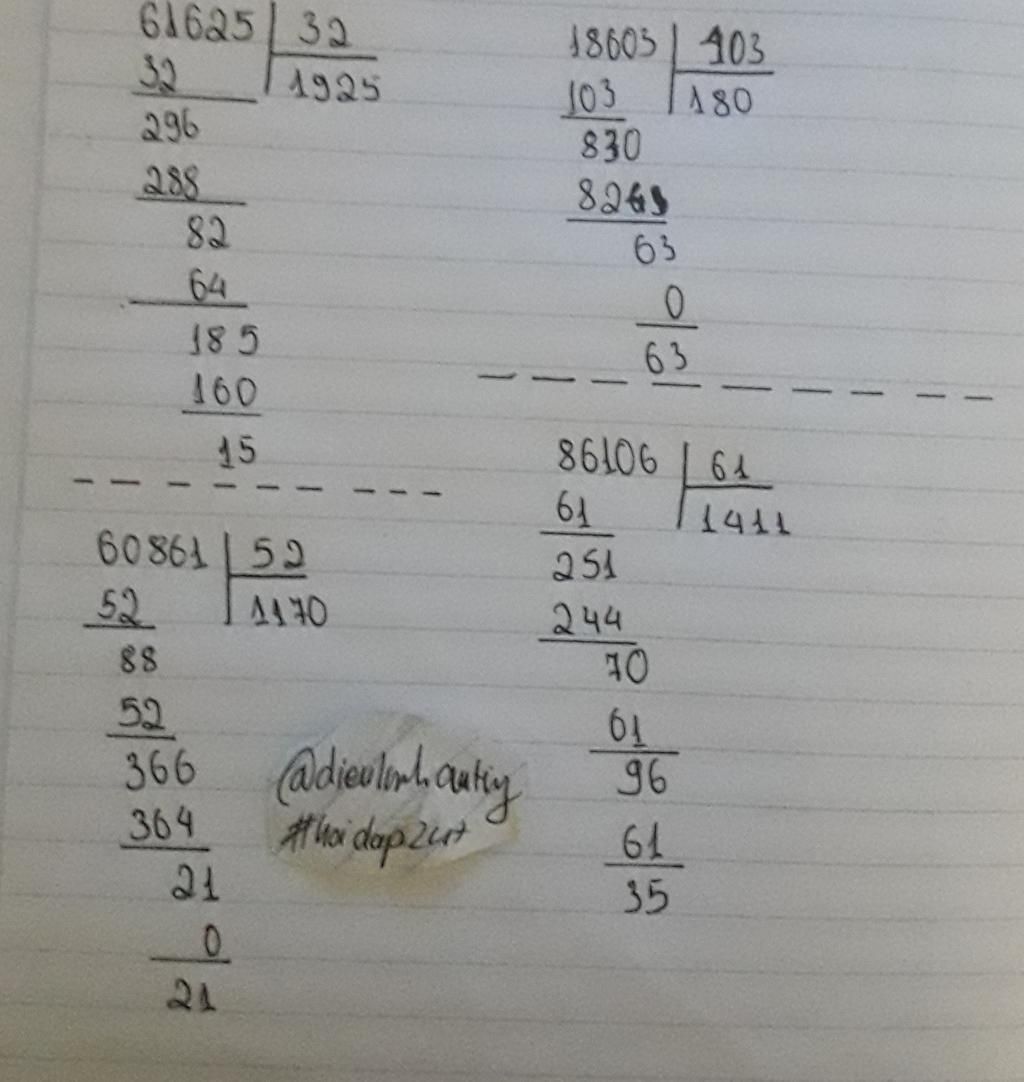 61625 | 32
32 1925
296
288
82
64
185
160
15
18603 | 103
103 180
830
824
63
0
63
60861 | 52
52 1170
88
52
366
364
21
0
21
86106 | 61
61 1411
251
244
70
61
96
61
35
#hoidap247